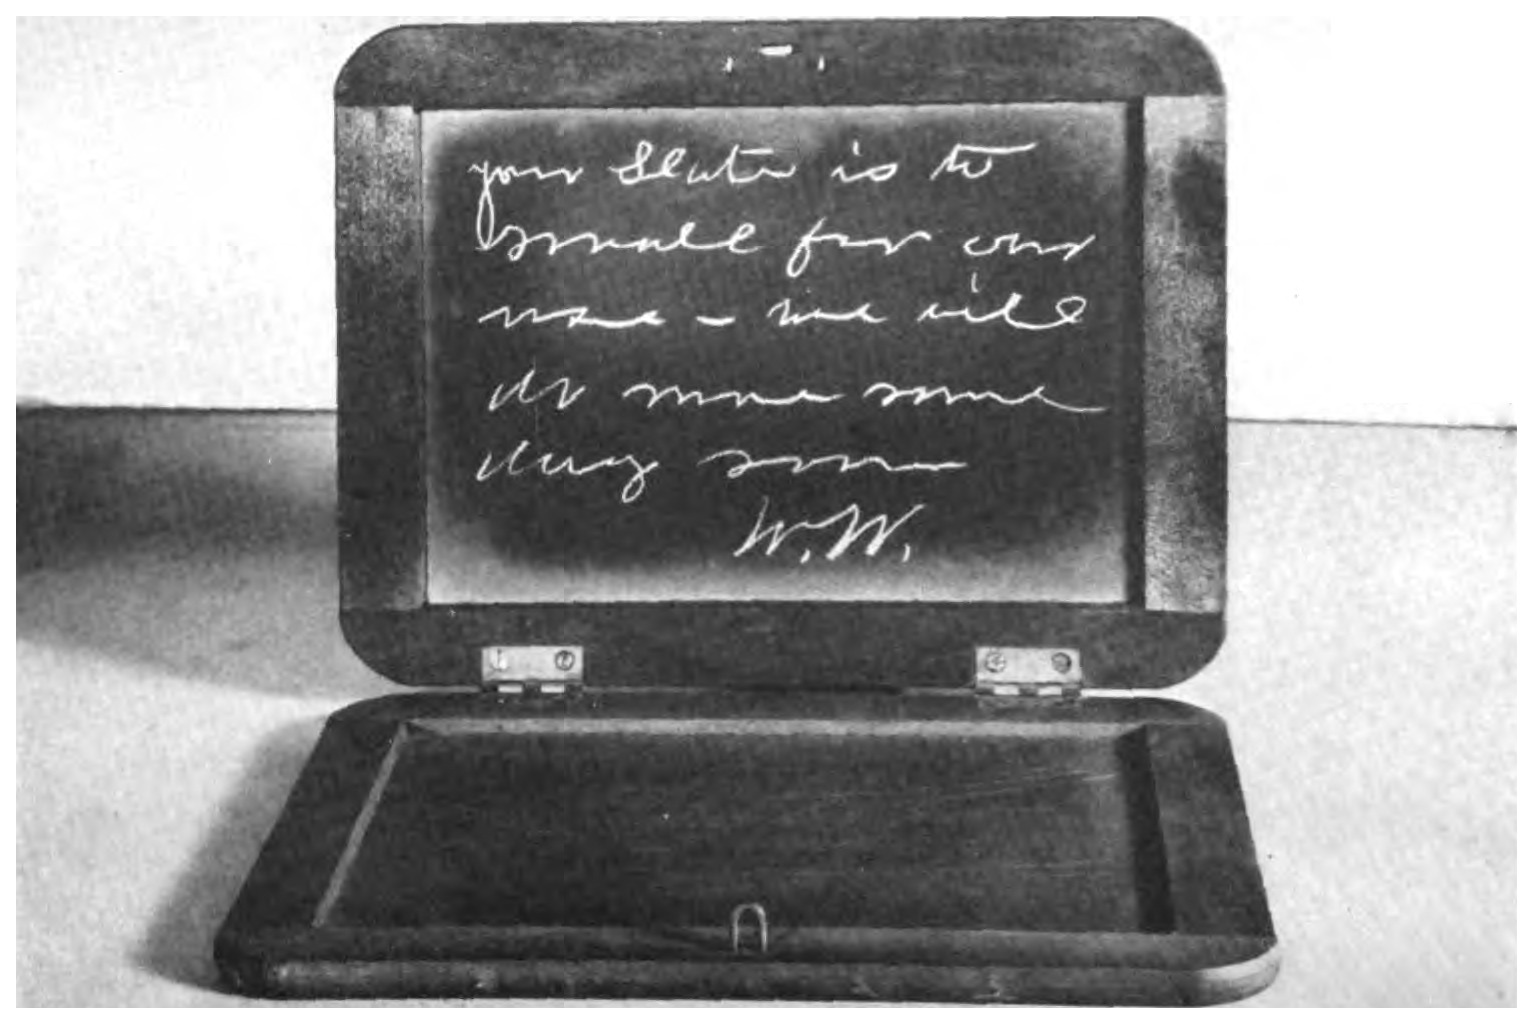 your Slate is to
small for our
use - we will
do more some
day soon
W.W.